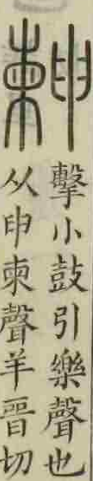 𣌾
擊小鼓引樂聲也
从申柬聲羊晋切